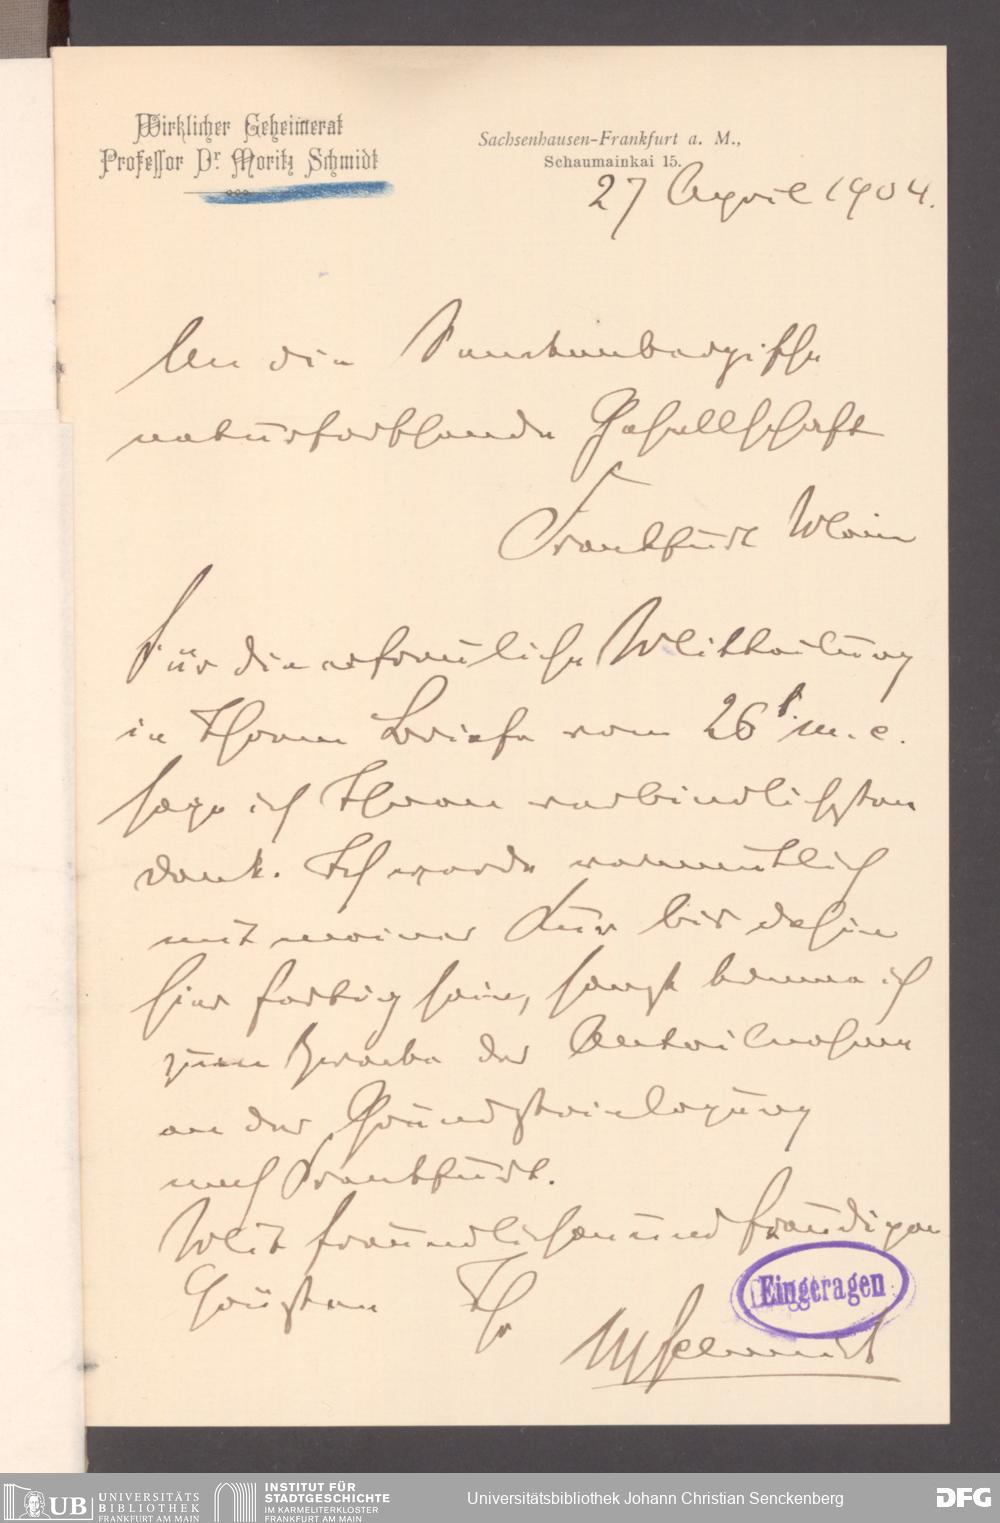 Wirklicher Geheimerat
Professor Dr. Moritz Schmidt
Sachsenhausen-Frankfurt a. M.,
Schaumainkai 15.
27 April 1904.
An die Senckenbergische
naturforschende Gesellschaft
Frankfurt Main
Für die erfreuliche Mittheilung
in Ihrem Briefe vom 26t. m. c.
sage ich Ihnen verbindlichsten
dank. Ich werde vermuthlich
mit meiner Kur bis dahin
hier fertig sein, sonst komme ich
zum Zwecke der Anteilnahme
an der Grundsteinlegung
nach Frankfurt.
Mit freundlichen und freudigen
Grüßen Ihr
MSchmidt
Eingetragen
UB UNIVERSITÄTS
BIBLIOTHEK
FRANKFURT AM MAIN
INSTITUT FÜR
STADTGESCHICHTE
IM KARMELITERKLOSTER
FRANKFURT AM MAIN
Universitätsbibliothek Johann Christian Senckenberg
DFG